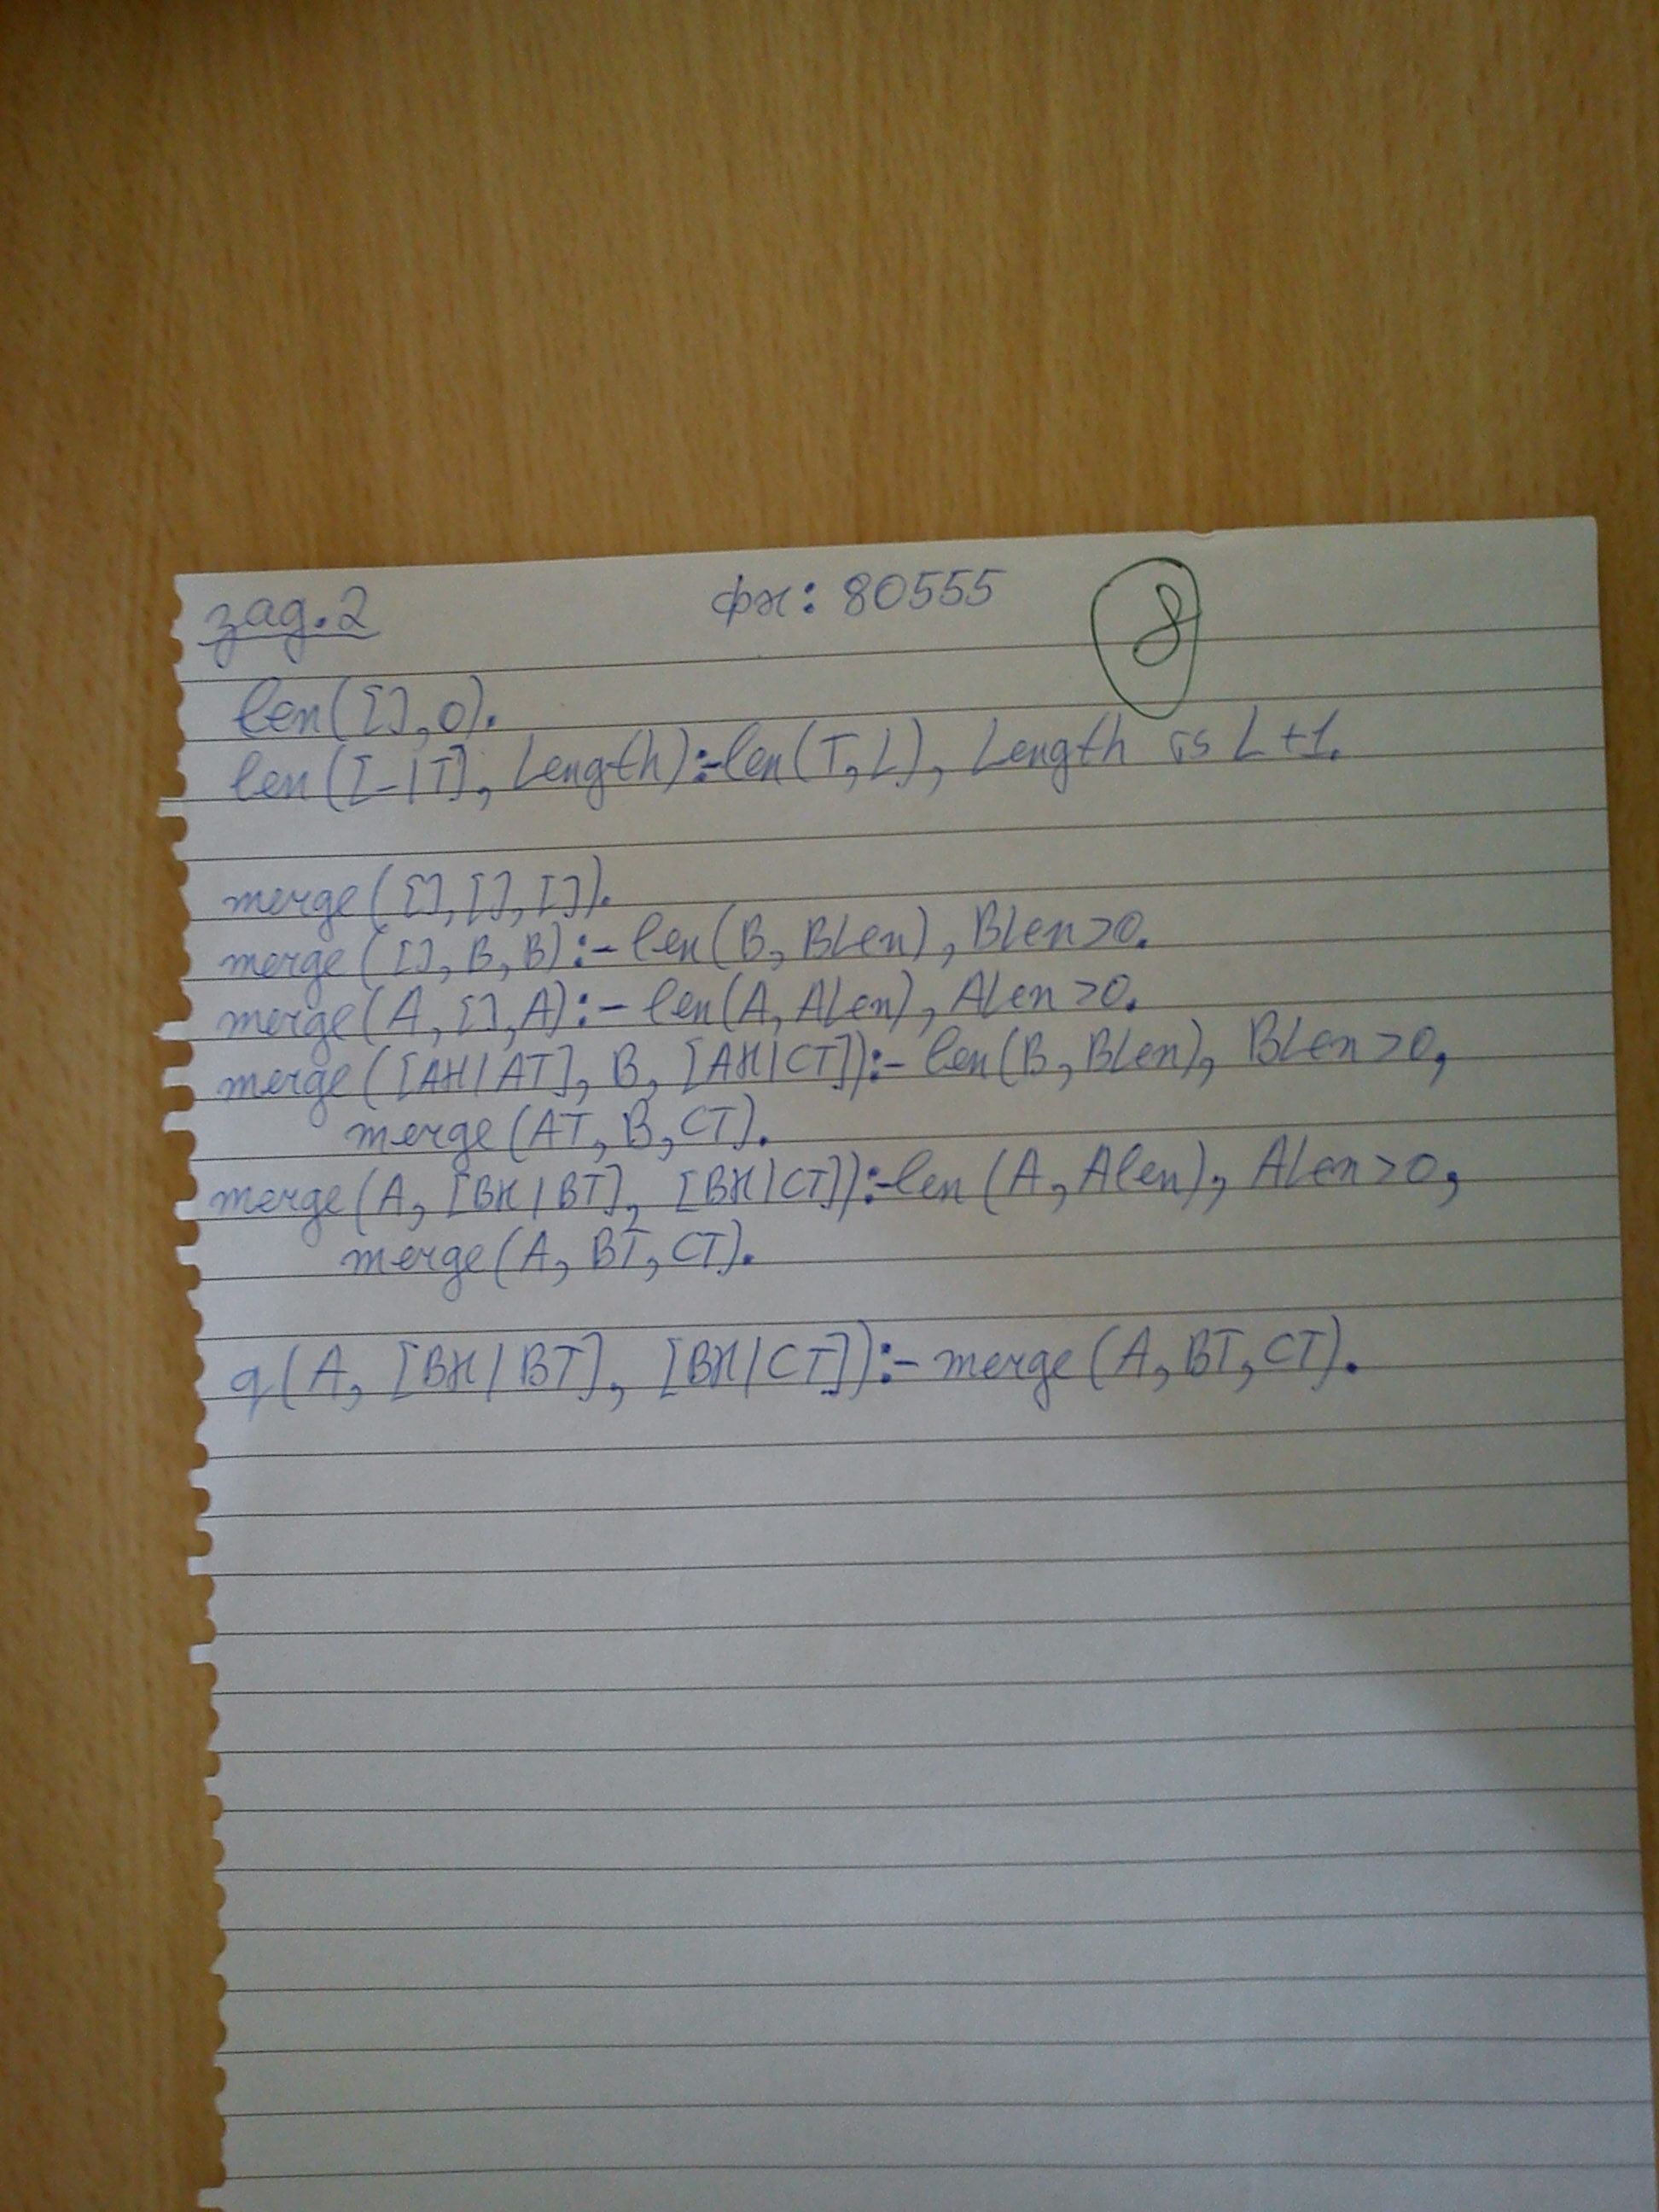 зад.2 фн: 80555 8
len([],0).
len([_|T], Length):-len(T,L), Length is L+1.
merge([],[],[]).
merge([],B,B):-len(B,BLen),BLen>0.
merge(A,[],A):-len(A,ALen),ALen>0.
merge([AH|AT],B,[AH|CT]):-len(B,BLen),BLen>0,
merge(AT,B,CT).
merge(A,[BH|BT],[BH|CT]):-len(A,ALen),ALen>0,
merge(A,BT,CT).
q(A,[BH|BT],[BH|CT]):-merge(A,BT,CT).